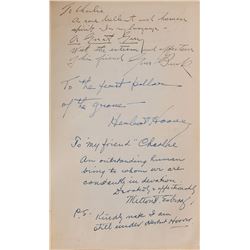 To Charlie
A rare dillent and human
spirit. In my language -
A Great Guy
With the esteem and affection
of his friend
To the
of the grove -
Herbert Hoover
To "my friend" Charlie
An outstanding human
being to whom we are
constantly in devotion
Devotedly & affectionately
Milton
P.S. Kindly note I am
still under Herbert Hoover